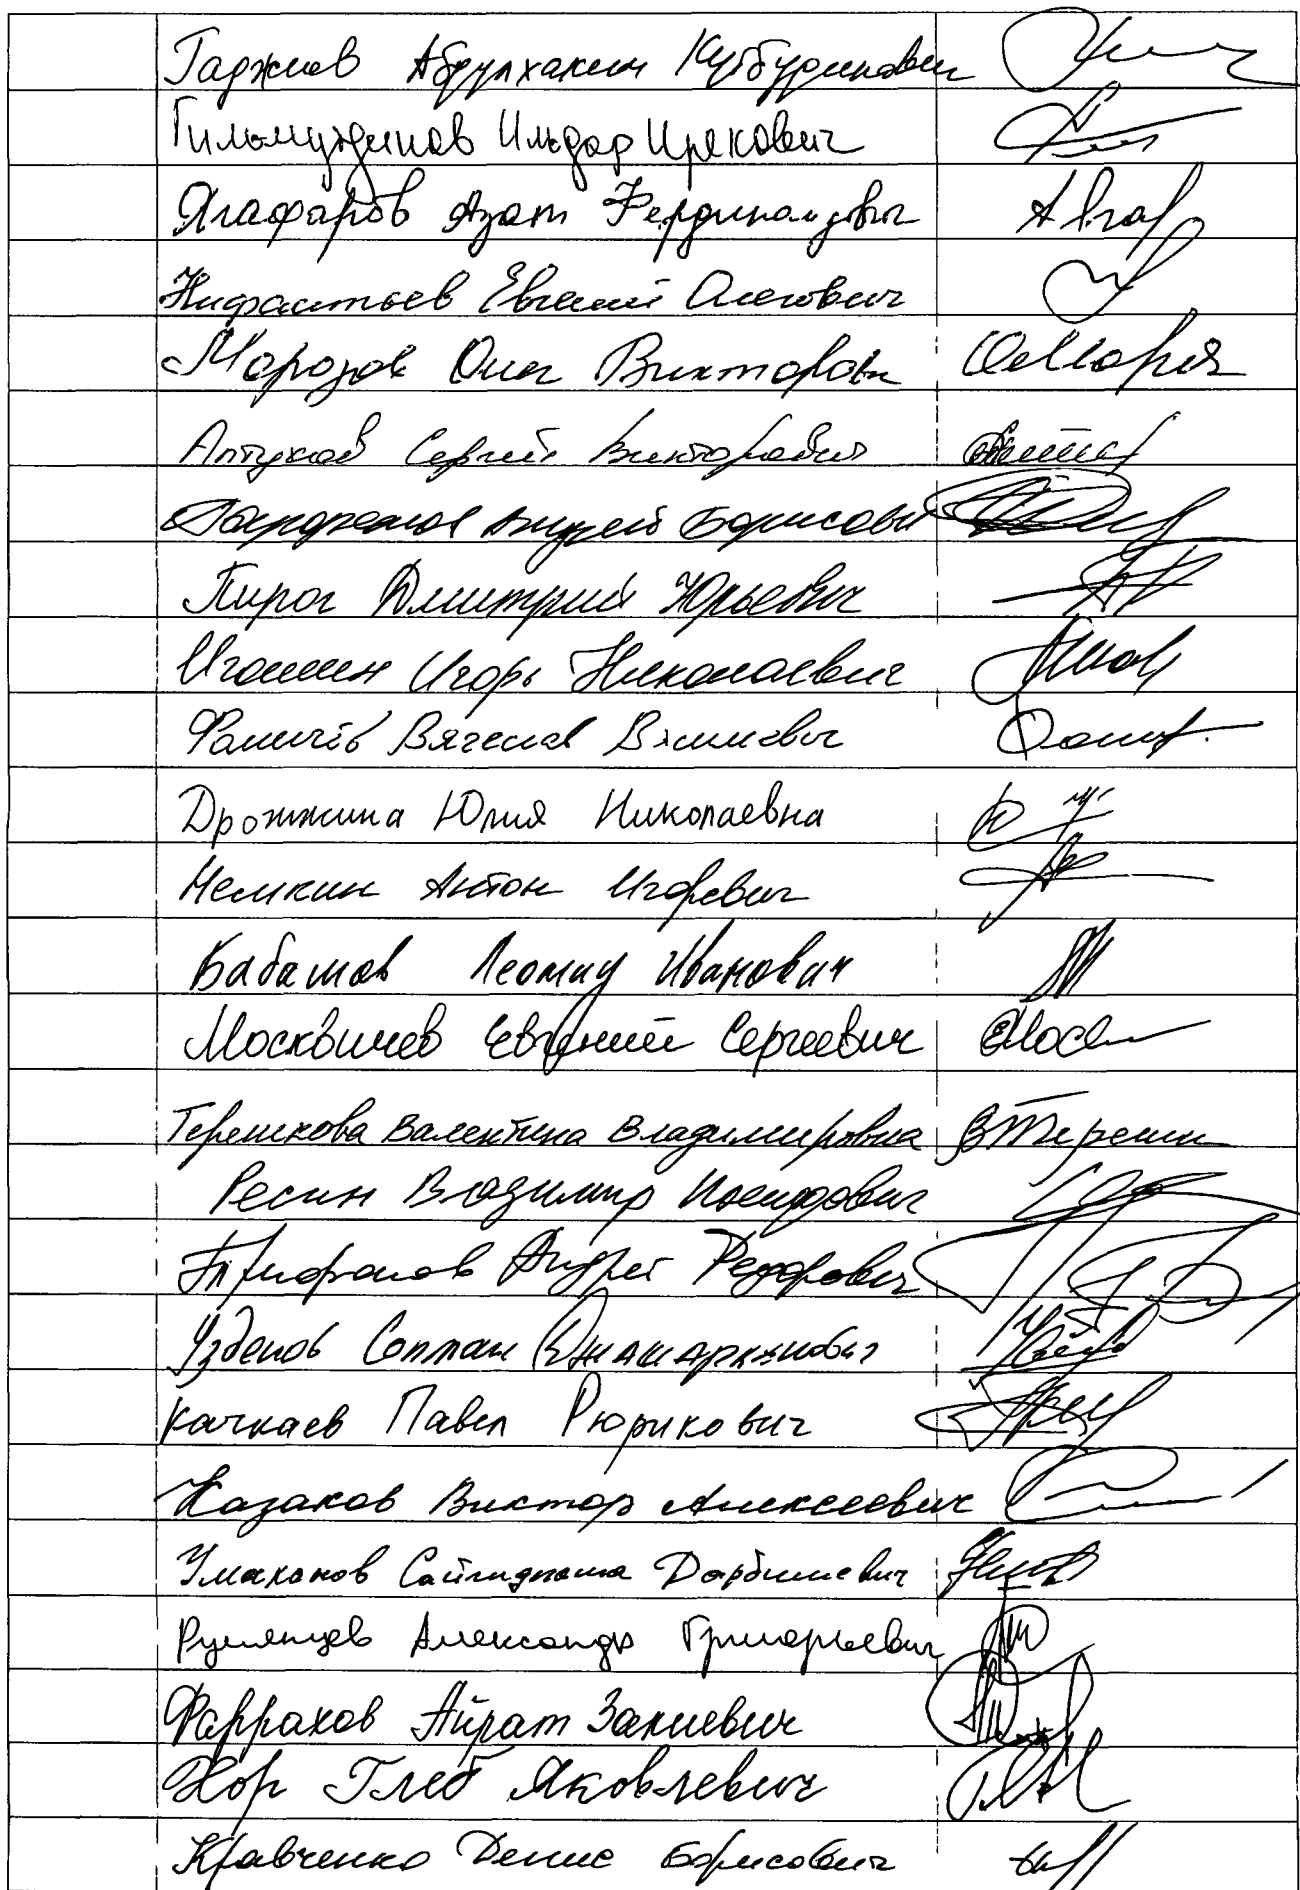 Гаджиев Абдулхаким Кутбудинович
Гильмутдинов Ильдар Ирекович
Ягафаров Азат Фердинандович
Нифантьев Евгений Олегович
Морозов Олег Викторович
Алтухов Сергей Викторович
Парфенов Андрей Борисович
Пирог Дмитрий Юрьевич
Игошин Игорь Николаевич
Фомичёв Вячеслав
Дрожжина Юлия Николаевна
Немкин Антон Игоревич
Бабашов Леонид Иванович
Москвичев Евгений Сергеевич
Терешкова Валентина Владимировна ВТерешк
Ресин Владимир Иосифович
Трифонов Андрей Федорович
Узденов Солтан
Качкаев Павел Рюрикович
Казаков Виктор Алексеевич
Умаханов Сайгидпаша Дарбишевич
Румянцев Александр Григорьевич
Фаррахов Айрат Закиевич
Хор Глеб Яковлевич
Кравченко Денис Борисович